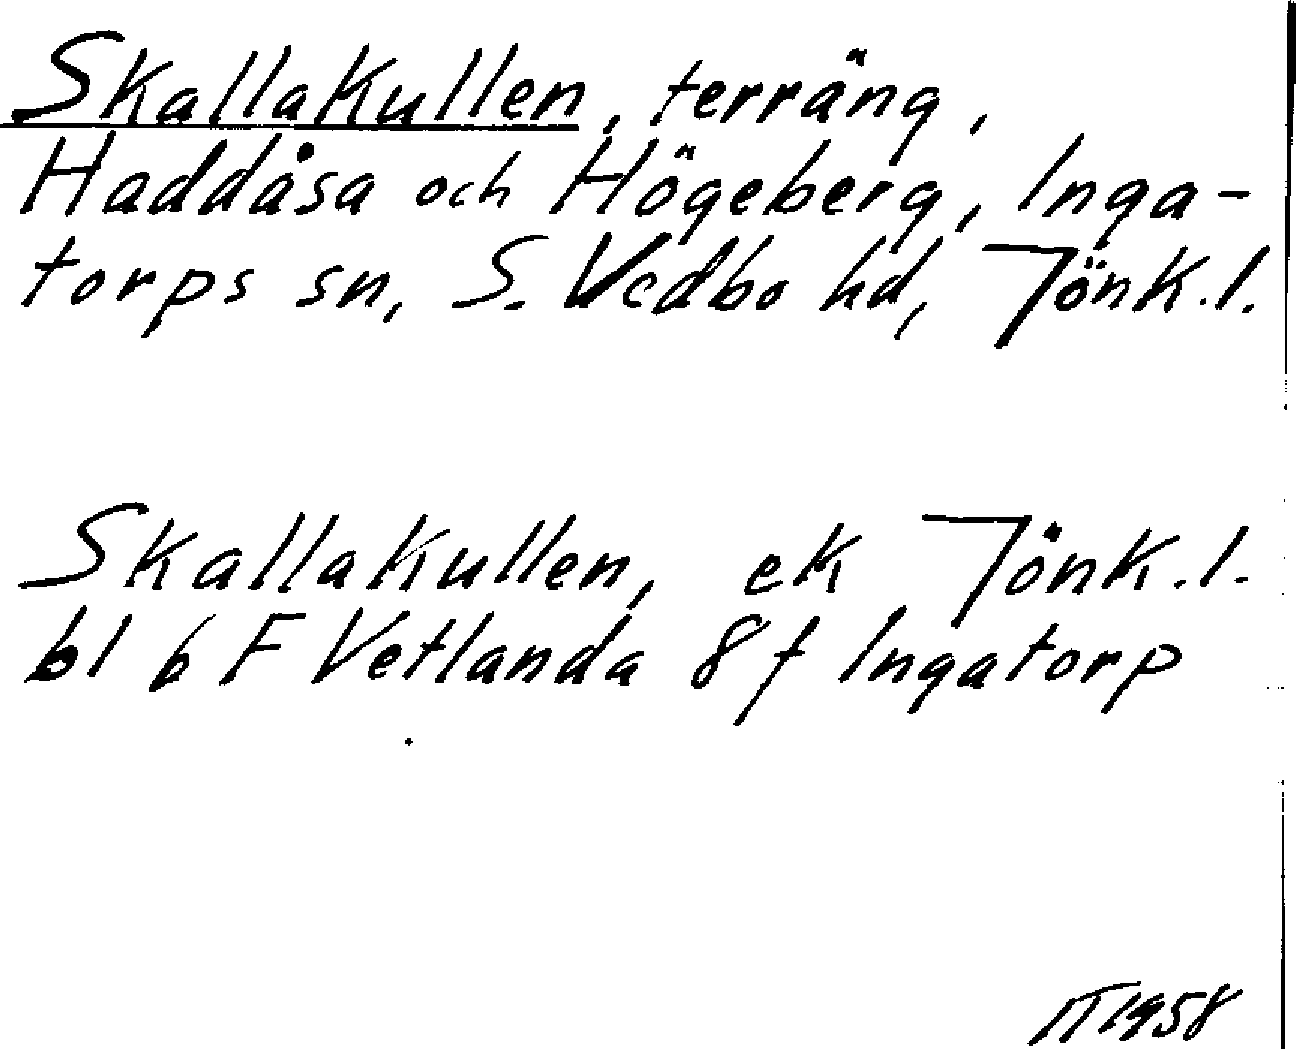 Skallakullen, terräng,
Haddåsa och Högeberg, Inga-
torps sn, S. Vedbo hd, Jönk.l.
Skallakullen, ek Jönk.l.
bl 6 F Vetlanda 8 f Ingatorp
IT 1958